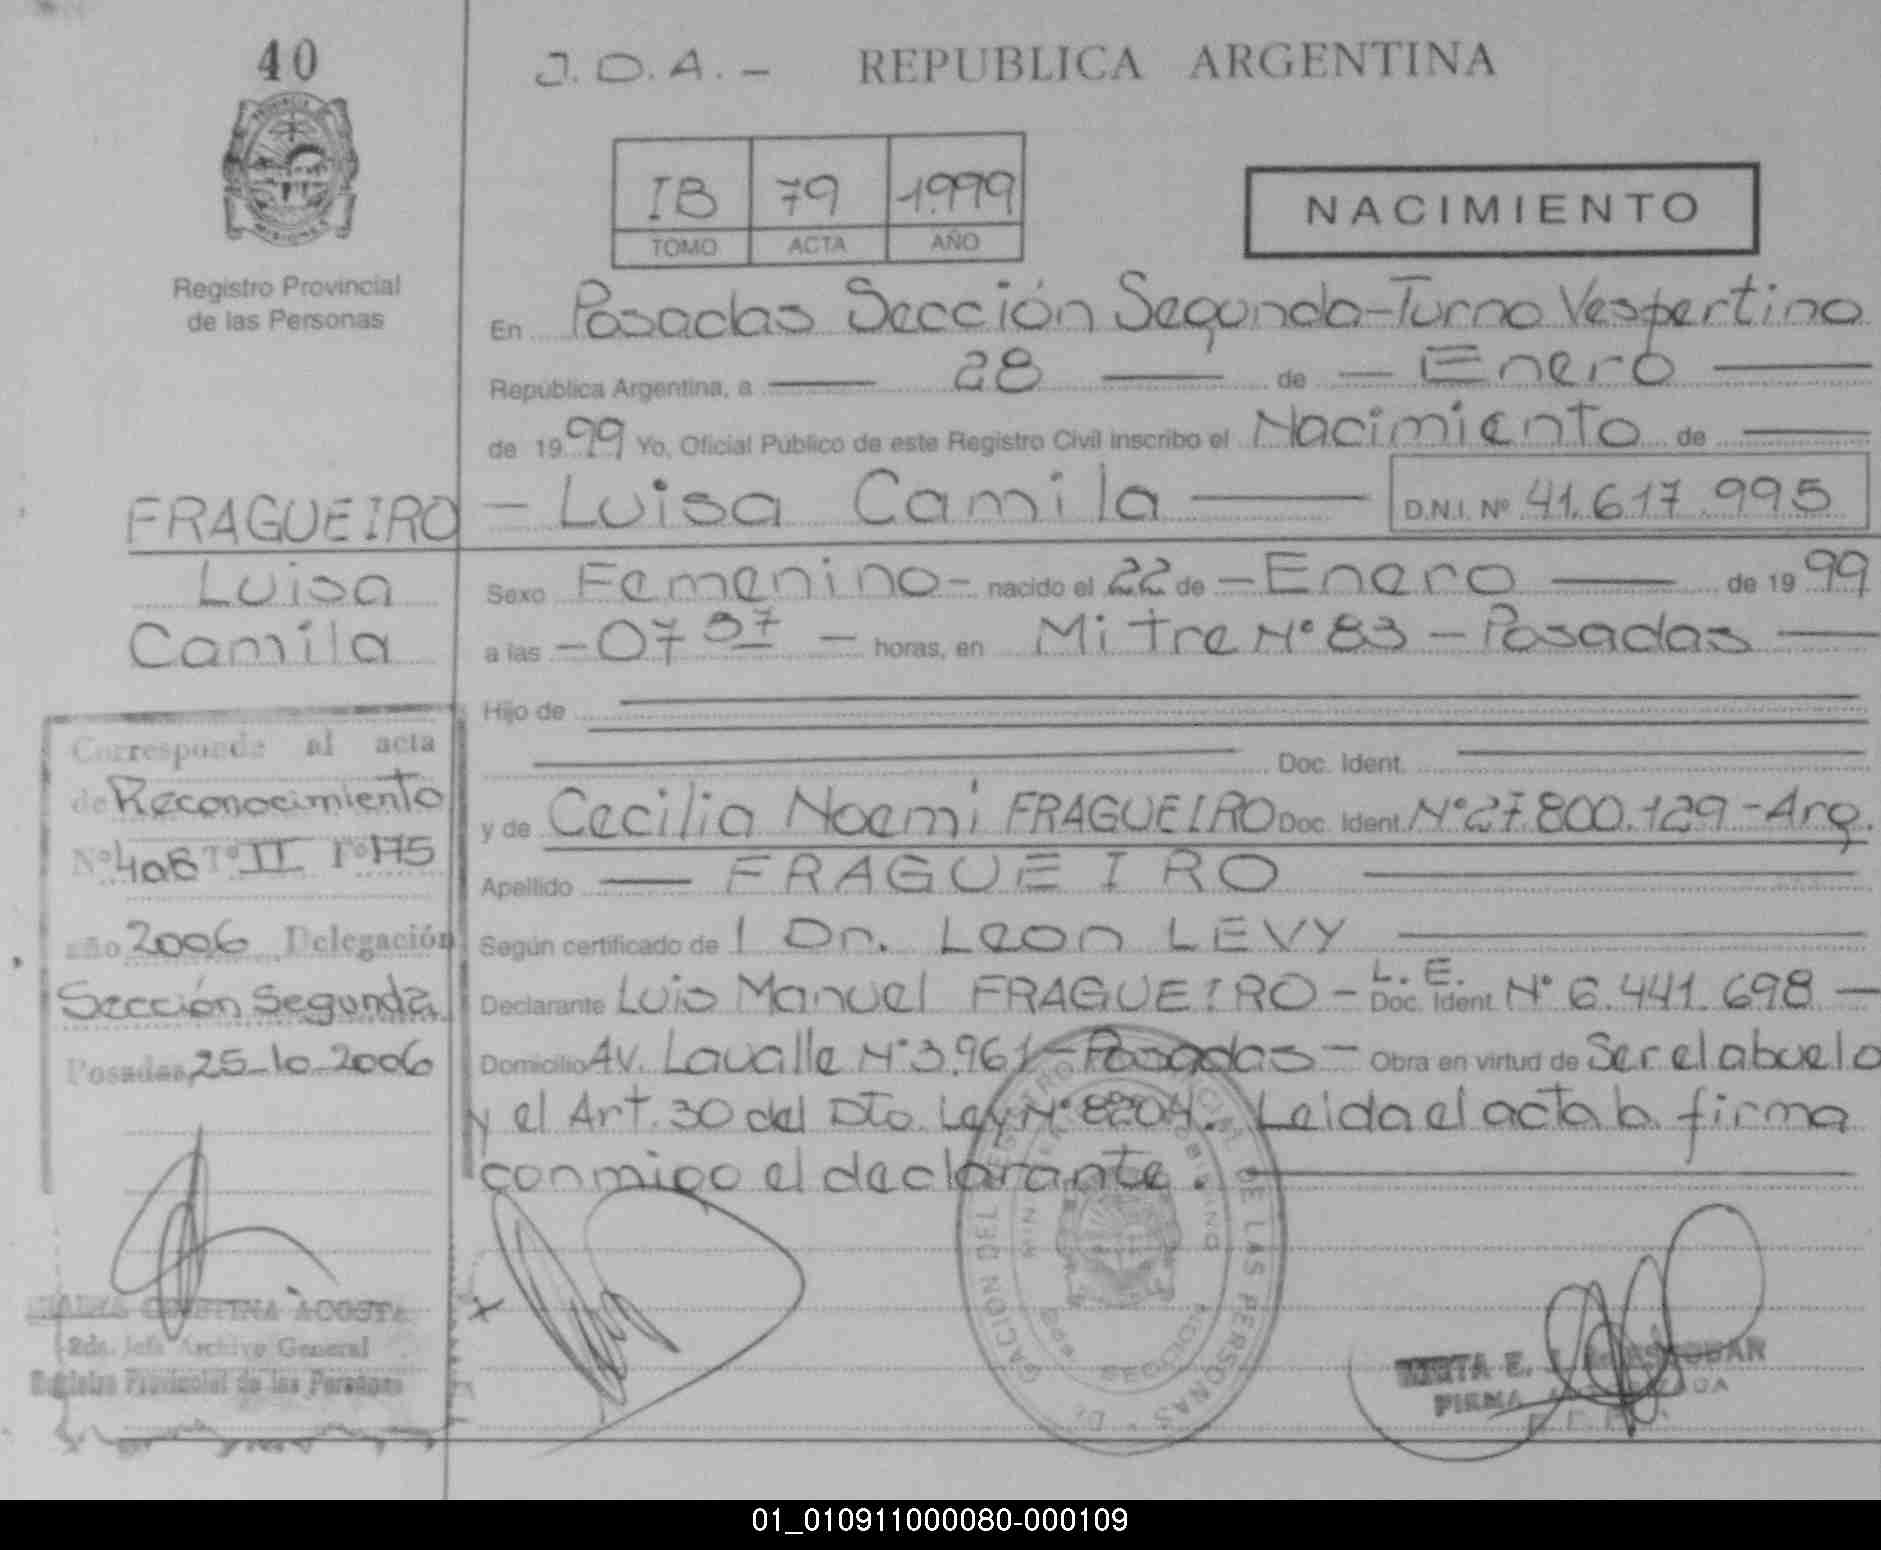 40
J.D.A. - REPUBLICA ARGENTINA
PROVINCIA DE
MISIONES
IB 79 1.999
TOMO ACTA AÑO
NACIMIENTO
Registro Provincial
de las Personas
En Posadas Sección Segunda-Turno Vespertino
República Argentina, a — 28 — de — Enero —
de 1999 Yo, Oficial Público de este Registro Civil inscribo el Nacimiento de —
FRAGUEIRO — Luisa Camila — D.N.I. Nº 41.617.995
Luisa
Camila
Sexo Femenino - nacido el 22 de - Enero — de 1999
a las - 07 37 — horas, en Mitre Nº 83 - Posadas —
Hijo de
Doc. Ident.
y de Cecilia Noemi FRAGUEIRO Doc. Ident. Nº 27.800.129 - Arg.
Apellido — FRAGUEIRO —
Según certificado de 1 Dr. Leon LEVY —
Declarante Luis Manuel FRAGUEIRO - L.E. Doc. Ident. Nº 6.441.698 —
Domicilio Av. Lavalle Nº 3.961 - Posadas - Obra en virtud de Ser el abuelo
y el Art. 30 del Dto. Ley Nº 8204. Leida el acta la firma
conmigo el declarante.
Corresponde al acta
de Reconocimiento
Nº 406 Tº II Fº 175
año 2006 Delegación
Sección Segunda
Posadas, 25-10-2006
CRISTINA ACOSTA
Jefe Archivo General
Registro Provincial de las Personas
DE LAS PERSONAS
FIRMA
01_010911000080-000109